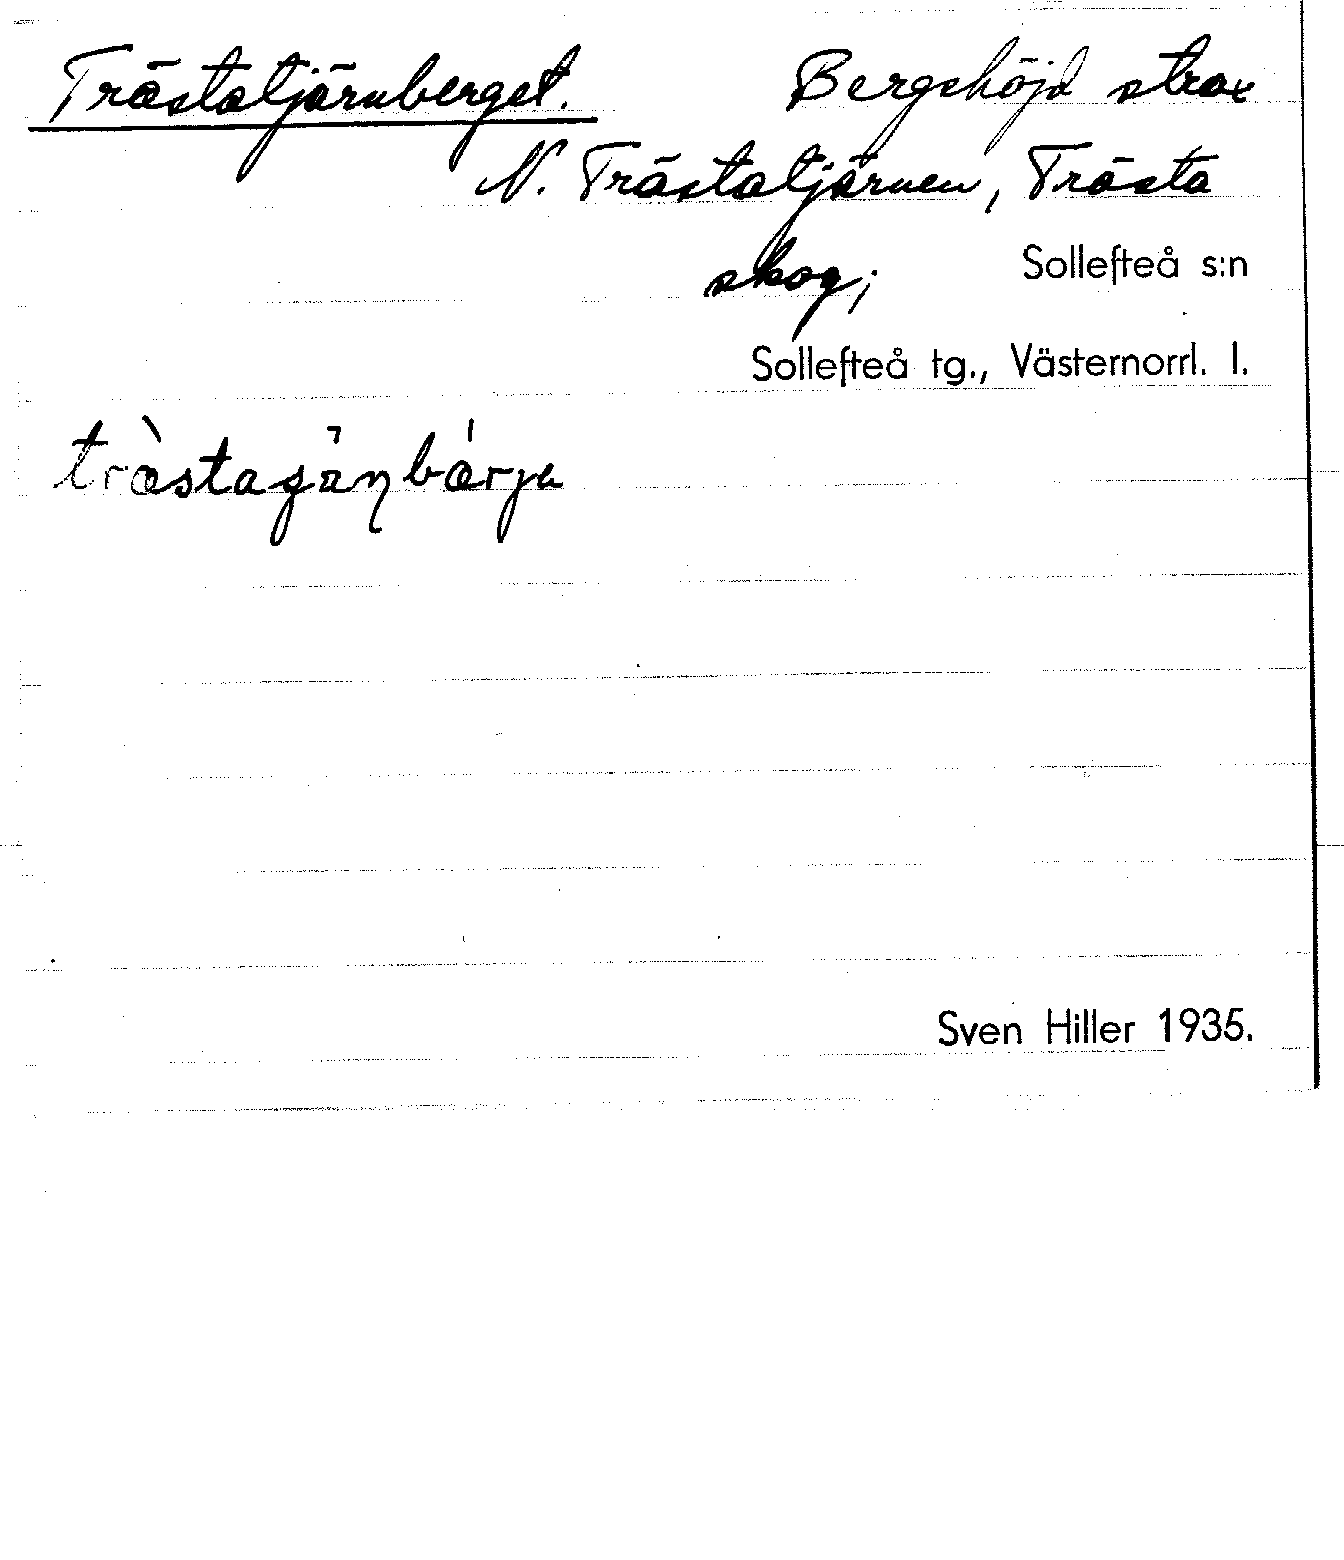 Trästatjärnberget. Bergshöjd strax
N. Trästatjärnen, Trästa
skog; Sollefteå s:n
Sollefteå tg., Västernorrl. l.
Sven Hiller 1935.